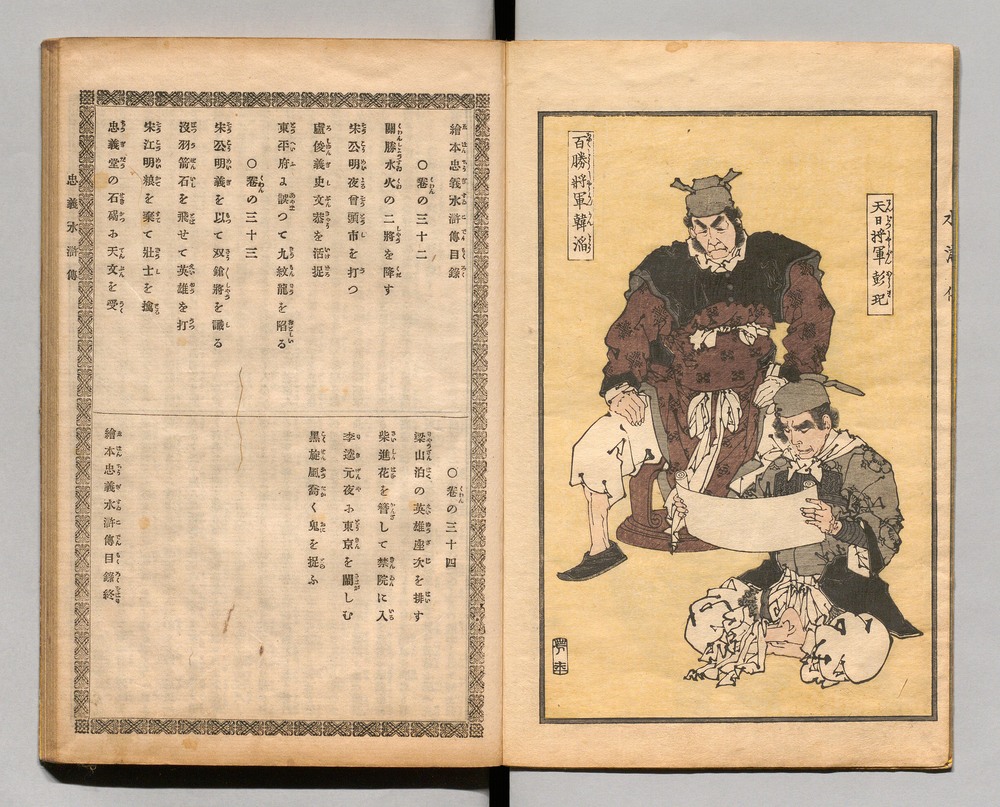 天日将軍彭玘
百勝將軍韓滔
繪本忠義水滸傳目錄
○卷の三十二
關勝水火の二將を降す
宋公明夜曾頭市を打つ
盧俊義史文恭を活捉
東平府に誤つて九紋龍を陷る
○卷の三十三
宋公明義を以て双鎗將を識る
沒羽箭石を飛せて英雄を打
宋江明粮を棄て壯士を擒
忠義堂の石碣に天文を受
○卷の三十四
梁山泊の英雄座次を排す
柴進花を簪して禁院に入
李逵元夜に東京を鬧しむ
黒旋風喬く鬼を捉ふ
繪本忠義水滸傳目錄終
忠義水滸傳